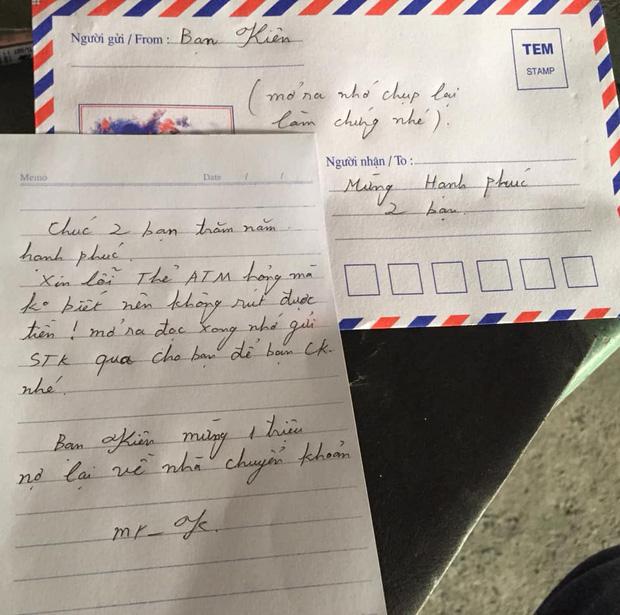 Người gửi / From : Bạn Kiên
TEM
STAMP
(mở ra nhớ chụp lại
làm chứng nhé).
Người nhận / To :
Mừng Hạnh phúc
2 bạn.
Memo Date / /
Chúc 2 bạn trăm năm
hạnh phúc.
Xin lỗi Thẻ ATM hỏng mà
ko biết nên không rút được
tiền ! mở ra đọc xong nhớ gửi
STK qua cho bạn để bạn CK.
nhé.
Bạn Kiên mừng 1 triệu
nợ lại về nhà chuyển khoản
mr_ K.